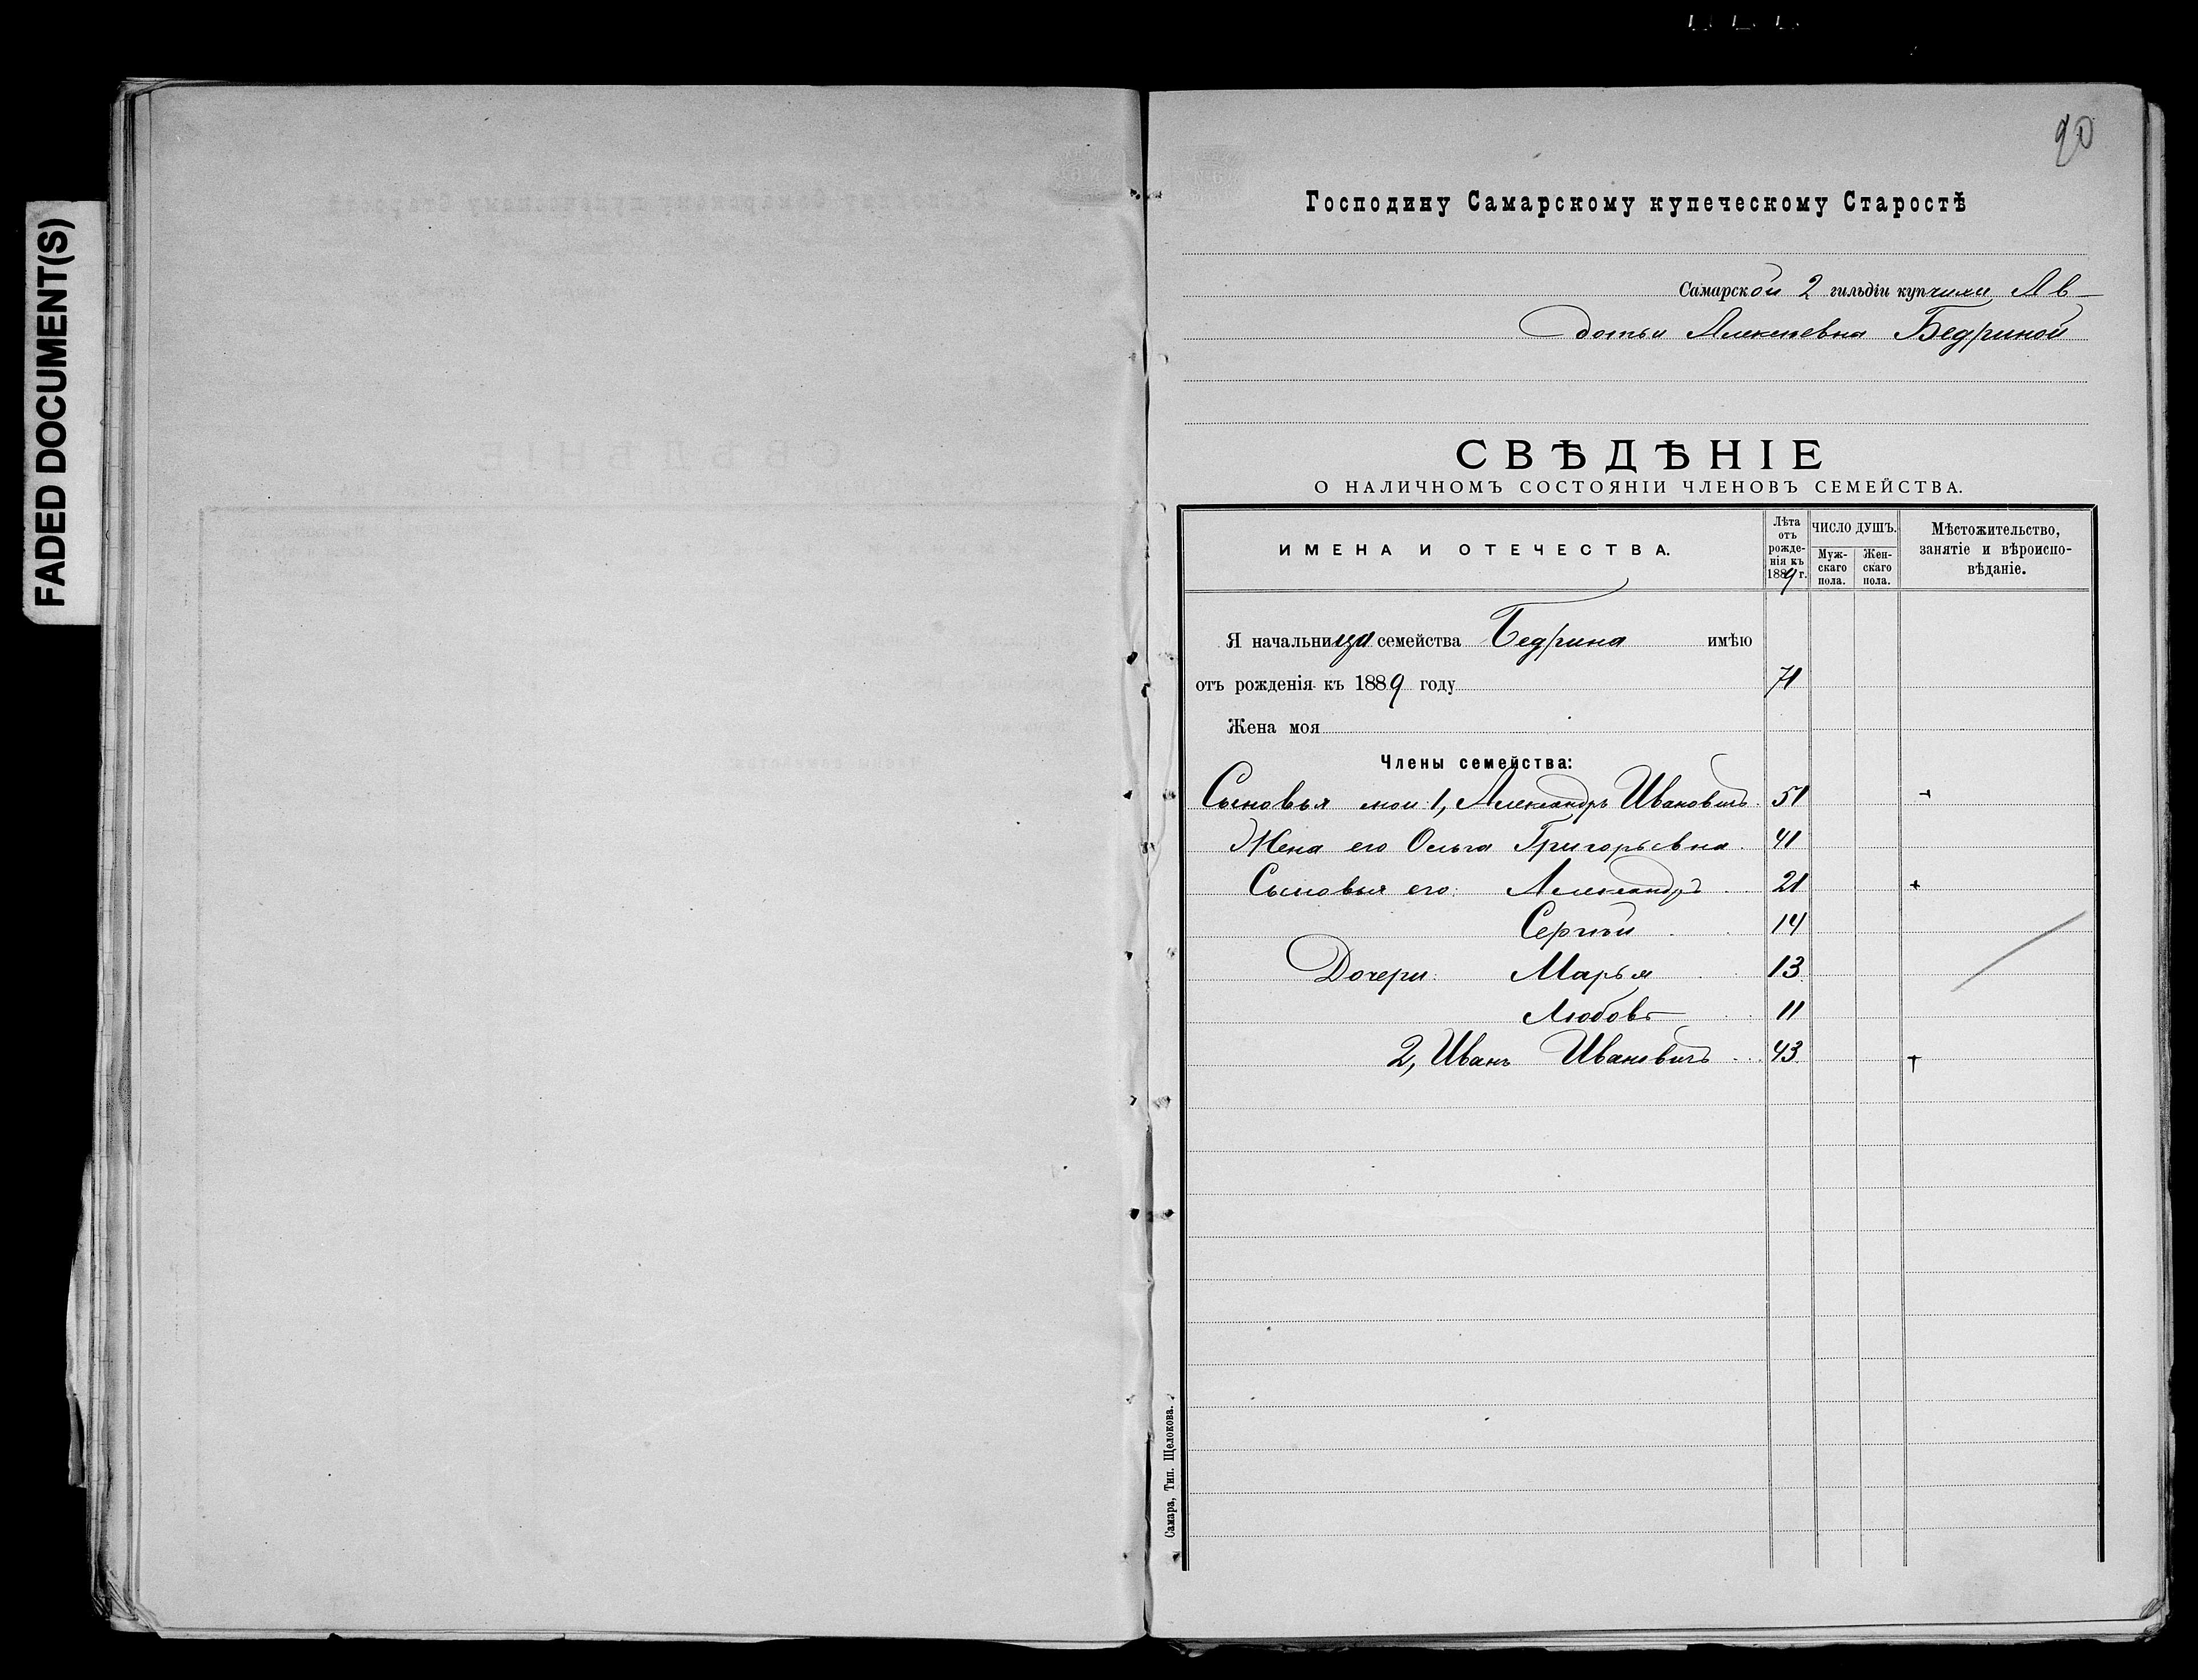 FADED DOCUMENT(S)
20
Господину Самарскому купеческому Старостѣ
Самарской 2 гильдіи купчихи Ав-
дотьи Алексѣевна Бедриной
СВѢДѢНІЕ
О НАЛИЧНОМЪ СОСТОЯНІИ ЧЛЕНОВЪ СЕМЕЙСТВА.
ИМЕНА И ОТЕЧЕСТВА.
Лѣта
отъ
рожде-
нія къ
1889 г.
ЧИСЛО ДУШЪ.
Муж-
скаго
пола.
Жен-
скаго
пола.
Мѣстожительство,
занятіе и вѣроиспо-
вѣданіе.
Я начальница семейства Бедрина имѣю
отъ рожденія къ 1889 году 71
Жена моя
Члены семейства:
Сыновья мои 1, Александръ Ивановичъ 51
Жена его Ольга Григорьевна 41
Сыновья его: Александръ 21 +
Сергѣй 14
Дочери: Марья 13
Любовь 11
2, Иванъ Ивановичъ 43 +
Самара, Тип. Щелокова.